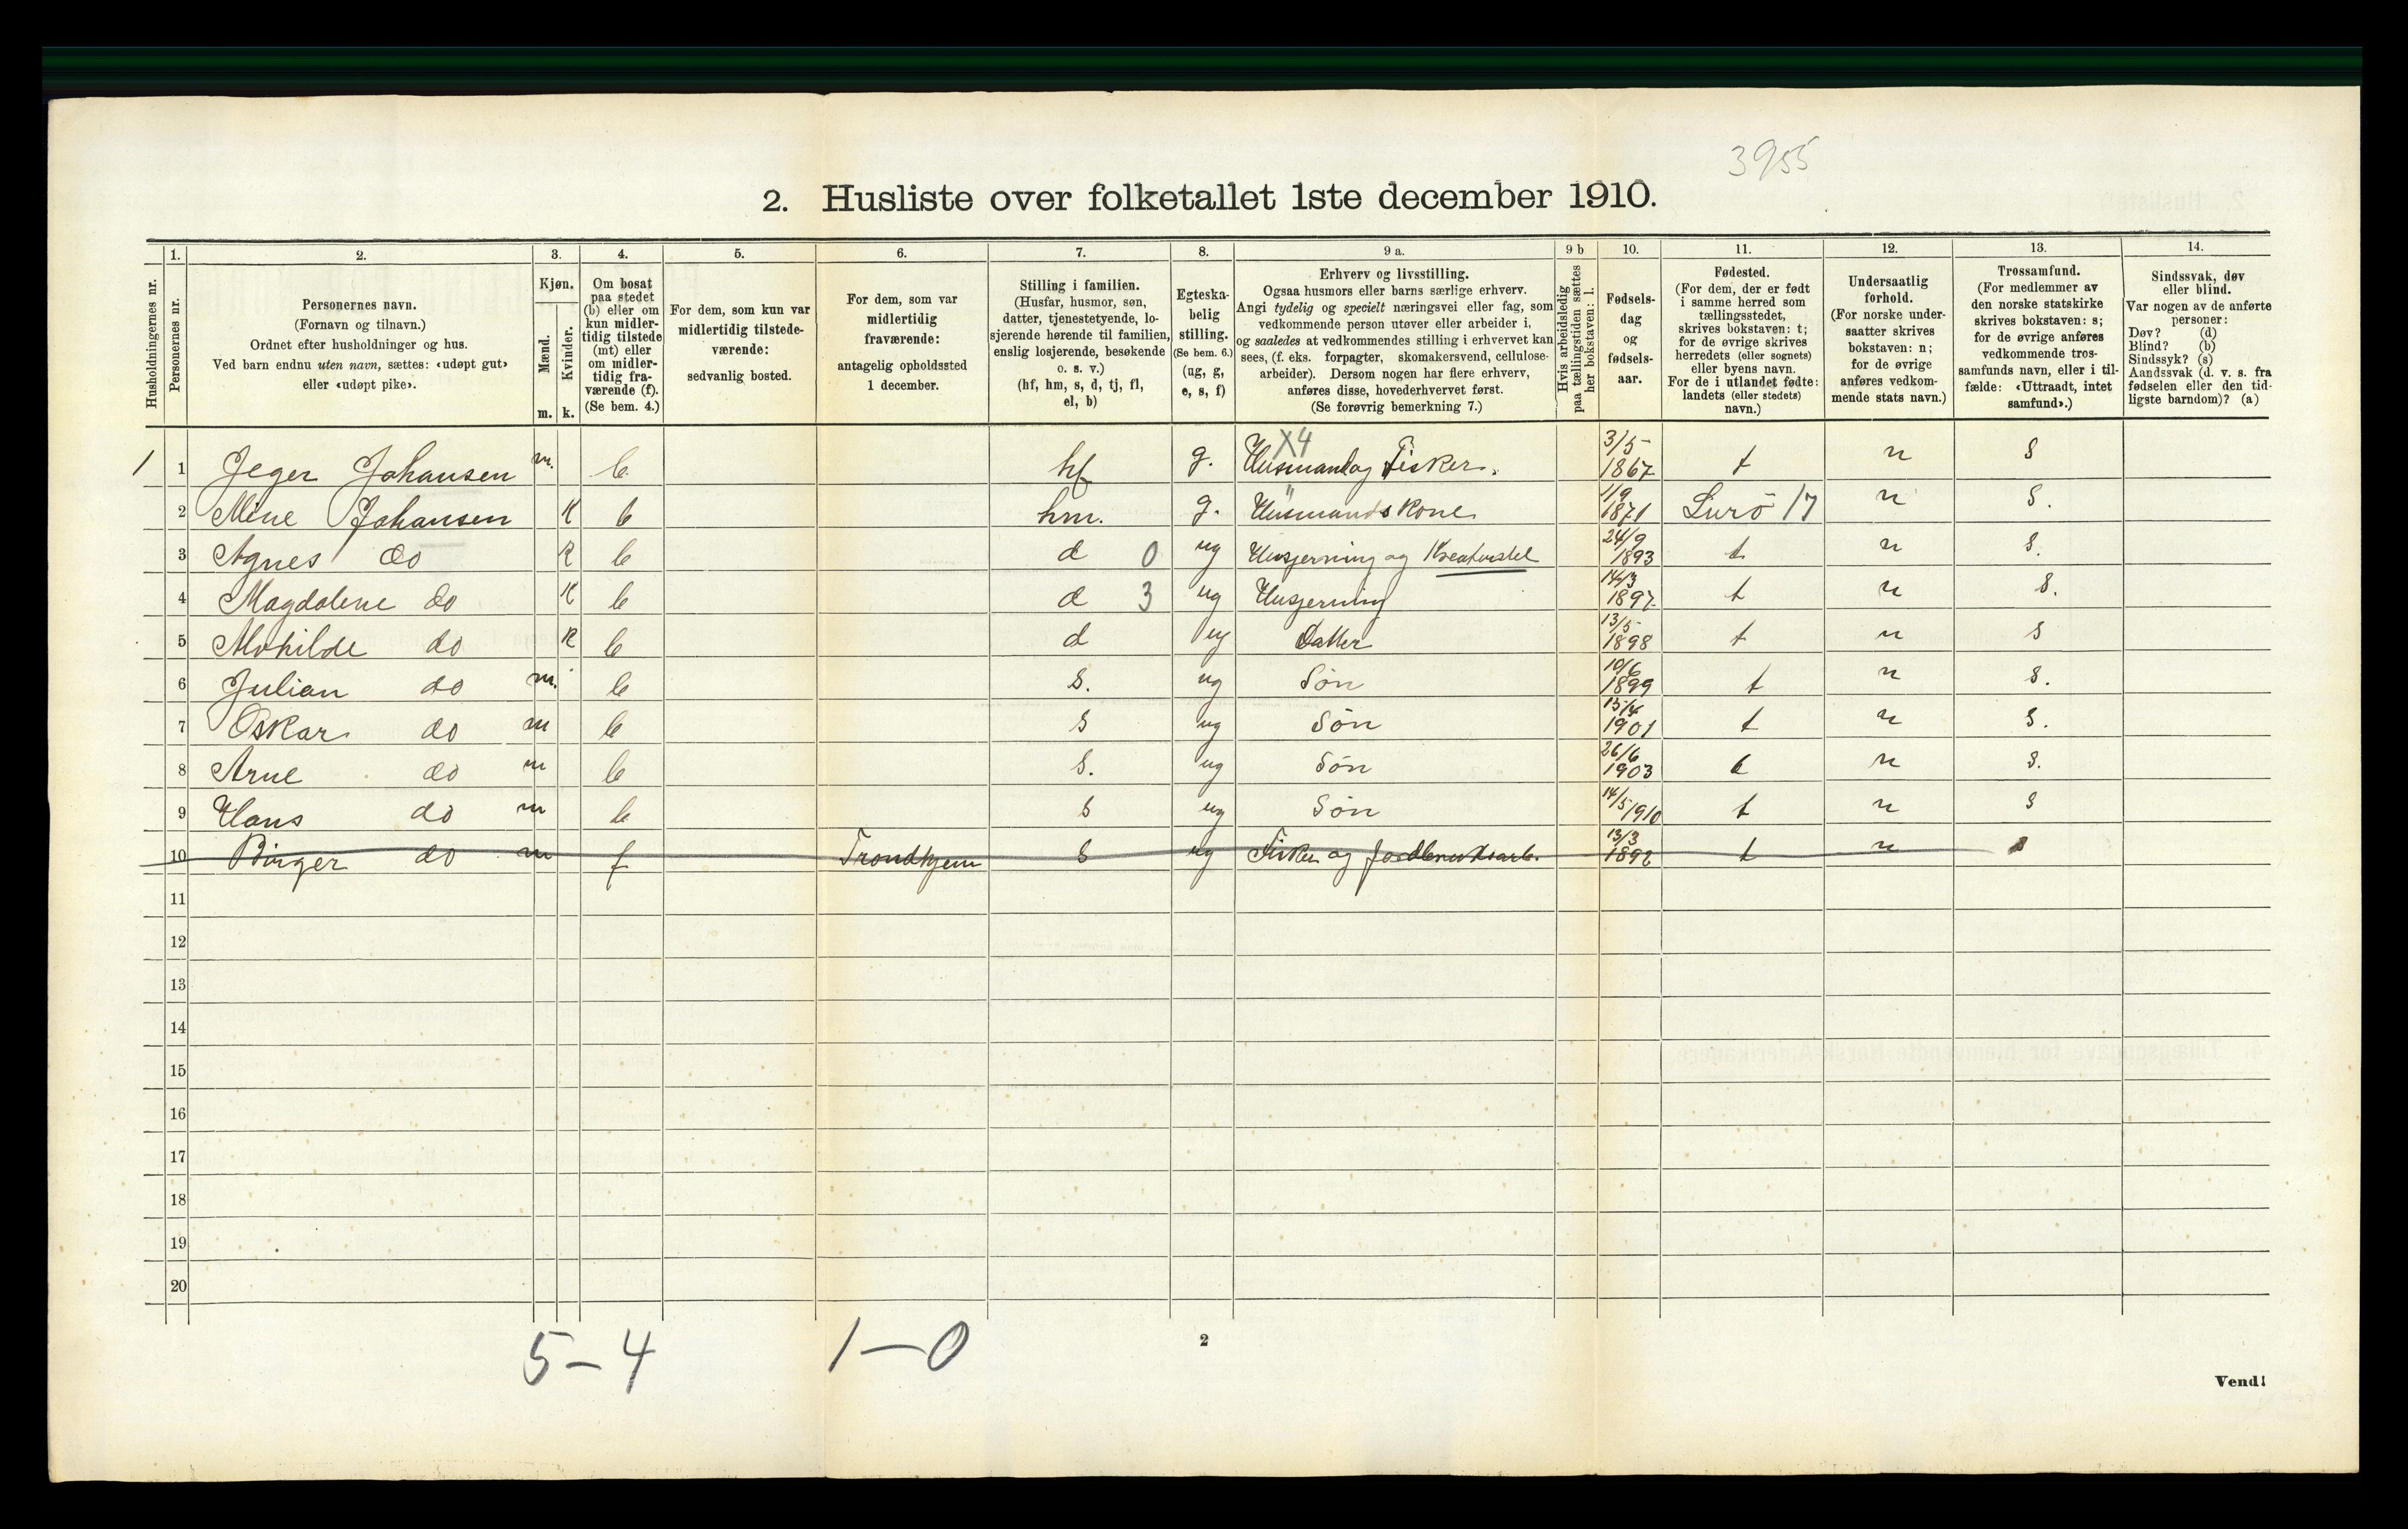 3955
2. Husliste over folketallet 1ste december 1910.
Husholdningernes nr.
1. Personernes nr.
2. Personernes navn.
(Fornavn og tilnavn.)
Ordnet efter husholdninger og hus.
Ved barn endnu uten navn, sættes: «udøpt gut»
eller «udøpt pike».
3. Kjøn.
Mænd. m.
Kvinder. k.
4. Om bosat
paa stedet
(b) eller om
kun midler-
tidig tilstede
(mt) eller
om midler-
tidig fra-
værende (f).
(Se bem. 4.)
5. For dem, som kun var
midlertidig tilstede-
værende:
sedvanlig bosted.
6. For dem, som var
midlertidig
fraværende:
antagelig opholdssted
1 december.
7. Stilling i familien.
(Husfar, husmor, søn,
datter, tjenestetyende, lo-
sjerende hørende til familien,
enslig losjerende, besøkende
o. s. v.)
(hf, hm, s, d, tj, fl,
el, b)
8. Egteska-
belig
stilling.
(Se bem. 6.)
(ug, g,
e, s, f)
9 a. Erhverv og livsstilling.
Ogsaa husmors eller barns særlige erhverv.
Angi tydelig og specielt næringsvei eller fag, som
vedkommende person utøver eller arbeider i,
og saaledes at vedkommendes stilling i erhvervet kan
sees, (f. eks. forpagter, skomakersvend, cellulose-
arbeider). Dersom nogen har flere erhverv,
anføres disse, hovederhvervet først.
(Se forøvrig bemerkning 7.)
9 b Hvis arbeidsledig
paa tællingstiden sættes
her bokstaven: l.
10. Fødsels-
dag
og
fødsels-
aar.
11. Fødested.
(For dem, der er født
i samme herred som
tællingsstedet,
skrives bokstaven: t;
for de øvrige skrives
herredets (eller sognets)
eller byens navn.
For de i utlandet fødte:
landets (eller stedets)
navn.)
12. Undersaatlig
forhold.
(For norske under-
saatter skrives
bokstaven: n;
for de øvrige
anføres vedkom-
mende stats navn.)
13. Trossamfund.
(For medlemmer av
den norske statskirke
skrives bokstaven: s;
for de øvrige anføres
vedkommende tros-
samfunds navn, eller i til-
fælde: «Uttraadt, intet
samfund».)
14. Sindssvak, døv
eller blind.
Var nogen av de anførte
personer:
Døv? (d)
Blind? (b)
Sindssyk? (s)
Aandssvak (d. v. s. fra
fødselen eller den tid-
ligste barndom)? (a)
1 1 Jeger Johansen m. b. hf g. X4 Husmand og Fisker. 3/5 1867 t n s
2 Mine Johansen K b hm. g. " Husmands Kone 1/9 1871 Lurö 17 n s.
3 Agnes do K b d 0 ug Husjerning og Kreaturstel 24/9 1893 t n s.
4 Magdalene do K b d 3 ug Husjerning 14/3 1897 t n s.
5 Mathilde do K b d ug Datter 13/5 1898 t n s
6 Julian do m. b s. ug Søn 10/6 1899 t n s.
7 Oskar do m b s ug Søn 1901 t n s.
8 Arne do m b s. ug Søn 26/6 1903 t n s.
9 Hans do m b s ug Søn 14/5 1910 t n s
10 Birger do m f Trondhjem s ug Fisker og Jordbruksarb. 13/3 1892 t n s
11
12
13
14
15
16
17
18
19
20
5 – 4 1 – 0
2
Vend!